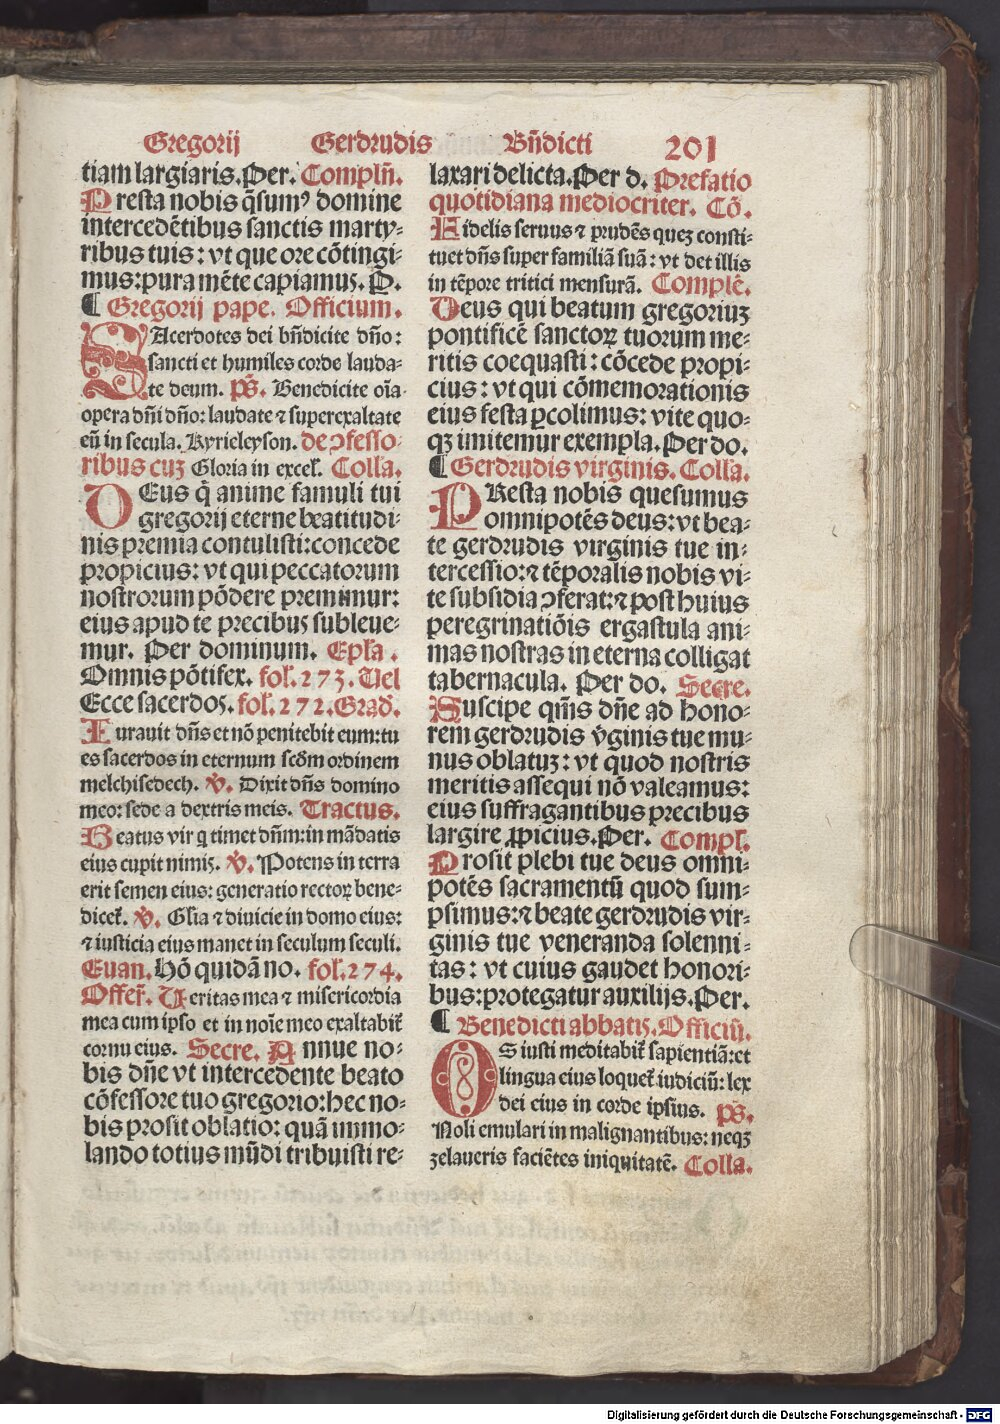 Gregorij Gerdrudis Bñdicti 201
tiam largiaris. Per. Complñ.
Presta nobis q̃sumꝰ domine
intercedẽtibus sanctis marty-
ribus tuis: vt que ore cõtingi-
mus: pura mẽte capiamus. P.
¶ Gregorij pape. Officium.
SAcerdotes dei bñdicite dño:
sancti et humiles corde lauda-
te deum. pš. Benedicite oĩa
opera dñi dño: laudate ⁊ superexaltate
eũ in secula. Kyrieleyson. de ꝯfesso-
ribus cuȝ Gloria in excel̃. Colľa.
DEus q̃ anime famuli tui
gregorij eterne beatitudi-
nis premia contulisti: concede
propicius: vt qui peccatorum
nostrorum põdere premimur:
eius apud te precibus subleue-
mur. Per dominum. Epľa.
Omnis põtifex. fol. 273. Uel
Ecce sacerdos. fol. 272. Grad̃.
Iurauit dñs et nõ penitebit eum: tu
es sacerdos in eternum scd̃m ordinem
melchisedech. ℣. Dixit dñs domino
meo: sede a dextris meis. Tractus.
Beatus vir q timet dñm: in mãdatis
eius cupit nimis. ℣. Potens in terra
erit semen eius: generatio rectoꝝ bene-
dicet̃. ℣. Glia ⁊ diuicie in domo eius:
⁊ iusticia eius manet in seculum seculi.
Euan. Hõ quidã no. fol. 274.
Offer̃. Ueritas mea ⁊ misericordia
mea cum ipso et in noĩe meo exaltabit̃
cornu eius. Secre. Annue no-
bis dñe vt intercedente beato
cõfessore tuo gregorio: hec no-
bis prosit oblatio: quã immo-
lando totius mũdi tribuisti re-
laxari delicta. Per d. Prefatio
quotidiana mediocriter. Cõ.
Fidelis seruus ⁊ prudẽs quez consti-
tuet dñs super familiã suã: vt det illis
in tẽpore tritici mensurã. Complẽ.
Deus qui beatum gregoriuȝ
pontificẽ sanctoꝝ tuorum me-
ritis coequasti: cõcede propi-
cius: vt qui cõmemorationis
eius festa ꝑcolimus: vite quo-
qȝ imitemur exempla. Per do.
¶ Gerdrudis virginis. Colľa.
PResta nobis quesumus
omnipotẽs deus: vt bea-
te gerdrudis virginis tue in-
tercessio: ⁊ tẽporalis nobis vi-
te subsidia ꝯferat: ⁊ post huius
peregrinatiõis ergastula ani-
mas nostras in eterna colligat
tabernacula. Per do. Secre.
Suscipe qm̃s dñe ad hono-
rem gerdrudis v̾ginis tue mu-
nus oblatuȝ: vt quod nostris
meritis assequi nõ valeamus:
eius suffragantibus precibus
largire ꝓpicius. Per. Compl.
Prosit plebi tue deus omni-
potẽs sacramentũ quod sum-
psimus: ⁊ beate gerdrudis vir-
ginis tue veneranda solenni-
tas: vt cuius gaudet honori-
bus: protegatur auxilijs. Per.
¶ Benedicti abbatis. Officiũ.
OS iusti meditabit̃ sapientiã: et
lingua eius loquet̃ iudiciũ: lex
dei eius in corde ipsius. pš.
Noli emulari in malignantibus: neqȝ
zelaueris faciẽtes iniquitatẽ. Colľa.
Digitalisierung gefördert durch die Deutsche Forschungsgemeinschaft - DFG